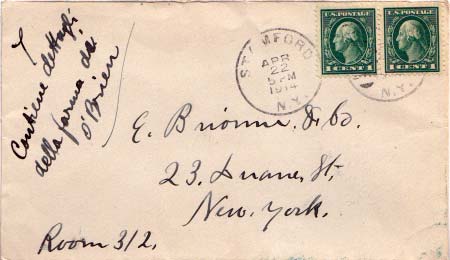 Contiene dettagli
della farma da
O'Brien
STAMFORD
APR
22
5 PM
1914
N.Y.
U.S. POSTAGE
1 CENT 1
U.S. POSTAGE
1 CENT 1
N.Y.
E. Brionne & Co.
23. Duane St,
New York.
Room 312.